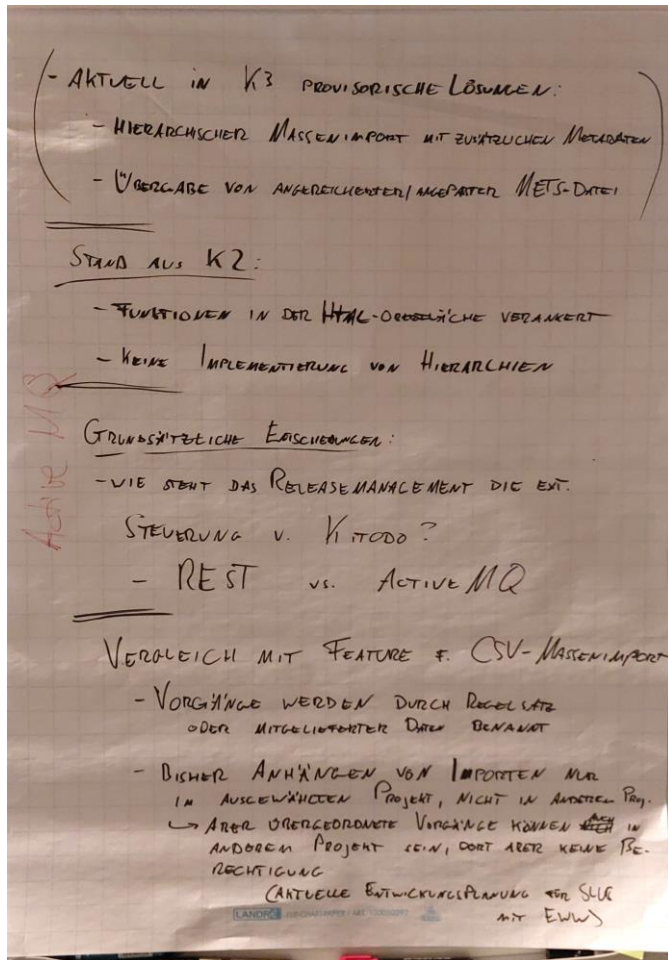 - AKTUELL IN K3 PROVISORISCHE LÖSUNGEN:
- HIERARCHISCHER MASSENIMPORT MIT ZUSÄTZLICHEN METADATEN
- ÜBERGABE VON ANGEREICHERTER/ANGEPASSTER METS-DATEI
STAND AUS K2:
- FUNKTIONEN IN DER HTML-OBERFLÄCHE VERANKERT
- KEINE IMPLEMENTIERUNG VON HIERARCHIEN
Active MQ
GRUNDSÄTZLICHE ENTSCHEIDUNGEN:
- WIE SIEHT DAS RELEASEMANAGEMENT DIE EXT.
STEUERUNG V. KITODO?
- REST VS. ACTIVEMQ
VERGLEICH MIT FEATURE F. CSV-MASSENIMPORT
- VORGÄNGE WERDEN DURCH REGELSATZ
ODER MITGELIEFERTER DATEN BENANNT
- BISHER ANHÄNGEN VON IMPORTEN NUR
IM AUSGEWÄHLTEN PROJEKT, NICHT IN ANDEREM PROJ.
↳ ABER ÜBERGEORDNETE VORGÄNGE KÖNNEN IN
ANDEREM PROJEKT SEIN, DORT ABER KEINE BE-
RECHTIGUNG
(AKTUELLE ENTWICKLUNGSPLANUNG FÜR SLUB
MIT EWW)
LANDRÉ